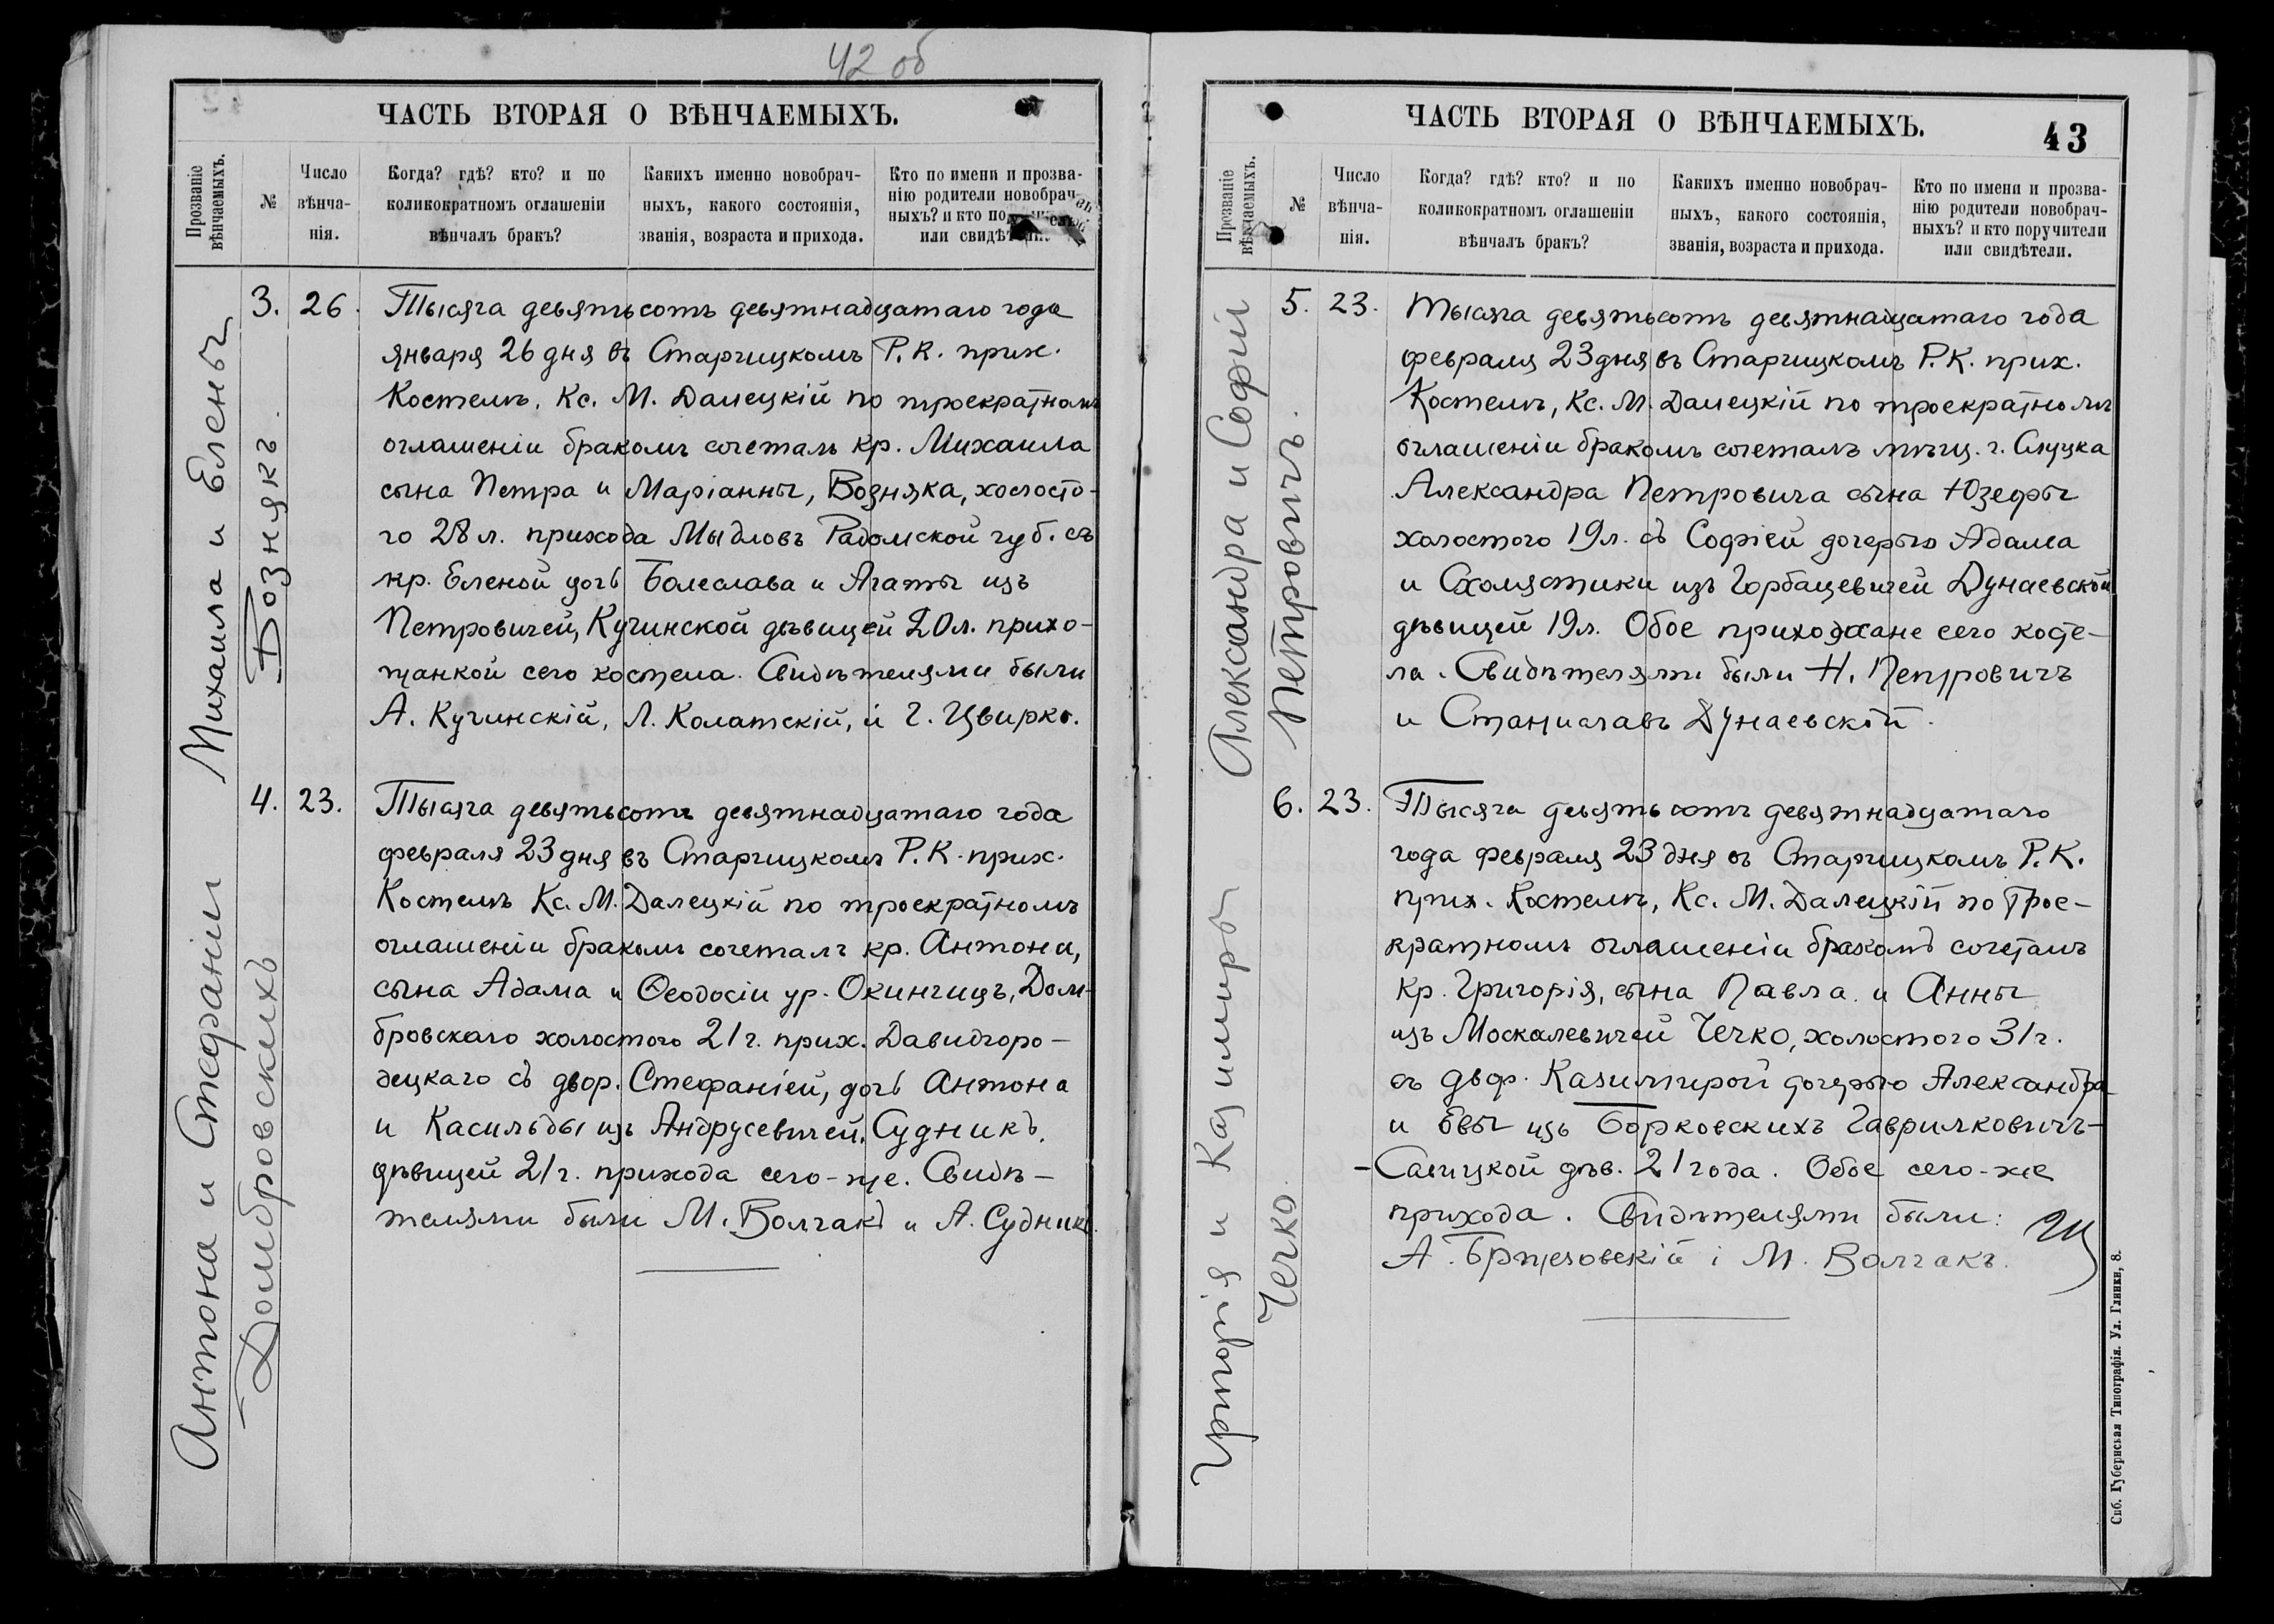 42 об
ЧАСТЬ ВТОРАЯ О ВѢНЧАЕМЫХЪ.
Прозваніе вѣнчаемыхъ.
№
Число вѣнча-нія.
Когда? гдѣ? кто? и по коликократномъ оглашеніи вѣнчалъ бракъ?
Какихъ именно новобрач-ныхъ, какого состоянія, званія, возраста и прихода.
Кто по имени и прозва-нію родители новобрач-ныхъ? и кто или
Михаила и Елены
Вознякъ.
3. 26.
Тысяча девятьсотъ девятнадцатаго года
января 26 дня въ Старчицкомъ Р. К. прих.
Костелѣ, Кс. М. Далецкій по троекратномъ
оглашеніи бракомъ сочеталъ кр. Михаила
сына Петра и Маріанны, Возняка, холосто-
го 28 л. прихода Мыдловъ Радомской губ. съ
кр. Еленой дочь Болеслава и Агаты изъ
Петровичей, Кучинской дѣвицей 20 л. прихо-
жанкой сего костела. Свидѣтелями были
А. Кучинскій, Л. Колатскій, и Г. Цвирко.
Антона и Стефаніи
Домбровскихъ
4. 23.
Тысяча девятьсотъ девятнадцатаго года
февраля 23 дня въ Старчицкомъ Р. К. прих.
Костелѣ Кс. М. Далецкій по троекратномъ
оглашеніи бракомъ сочеталъ кр. Антона,
сына Адама и Ѳеодосіи ур. Окинчицъ, Дом-
бровскаго холостого 21 г. прих. Давидгоро-
децкаго съ двор. Стефаніей, дочь Антона
и Касильды изъ Андрусевичей, Судникъ,
дѣвицей 21 г. прихода сего-же. Свидѣ-
телями были М. Волчакъ и А. Судникъ.
43
ЧАСТЬ ВТОРАЯ О ВѢНЧАЕМЫХЪ.
Прозваніе вѣнчаемыхъ.
№
Число вѣнча-нія.
Когда? гдѣ? кто? и по коликократномъ оглашеніи вѣнчалъ бракъ?
Какихъ именно новобрач-ныхъ, какого состоянія, званія, возраста и прихода.
Кто по имени и прозва-нію родители новобрач-ныхъ? и кто поручители или свидѣтели.
Александра и Софіи
Петровичъ.
5. 23.
Тысяча девятьсотъ девятнадцатаго года
февраля 23 дня въ Старчицкомъ Р. К. прих.
Костелѣ, Кс. М. Далецкій по троекратномъ
оглашеніи бракомъ сочеталъ мѣщ. г. Слуцка
Александра Петровича сына Юзефы
холостого 19 л. съ Софіей дочерью Адама
и Схолястики изъ Горбацевичей Дунаевской
дѣвицей 19 л. Обое прихожане сего косте-
ла. Свидѣтелями были Н. Петровичъ
и Станиславъ Дунаевскій.
Григорія и Казимиры
Чечко.
6. 23.
Тысяча девятьсотъ девятнадцатаго
года февраля 23 дня въ Старчицкомъ Р. К.
прих. Костелѣ, Кс. М. Далецкій по трое-
кратномъ оглашеніи бракомъ сочеталъ
кр. Григорія, сына Павла и Анны
изъ Москалевичей Чечко, холостого 31 г.
съ двор. Казимирой дочерью Александра
и Евы изъ Борковскихъ Гаврилковичъ-
-Савицкой дѣв. 21 года. Обое сего-же
прихода. Свидѣтелями были:
А. Бржезовскій і М. Волчакъ.
Спб. Губернская Типографія. Ул. Глинки, 8.